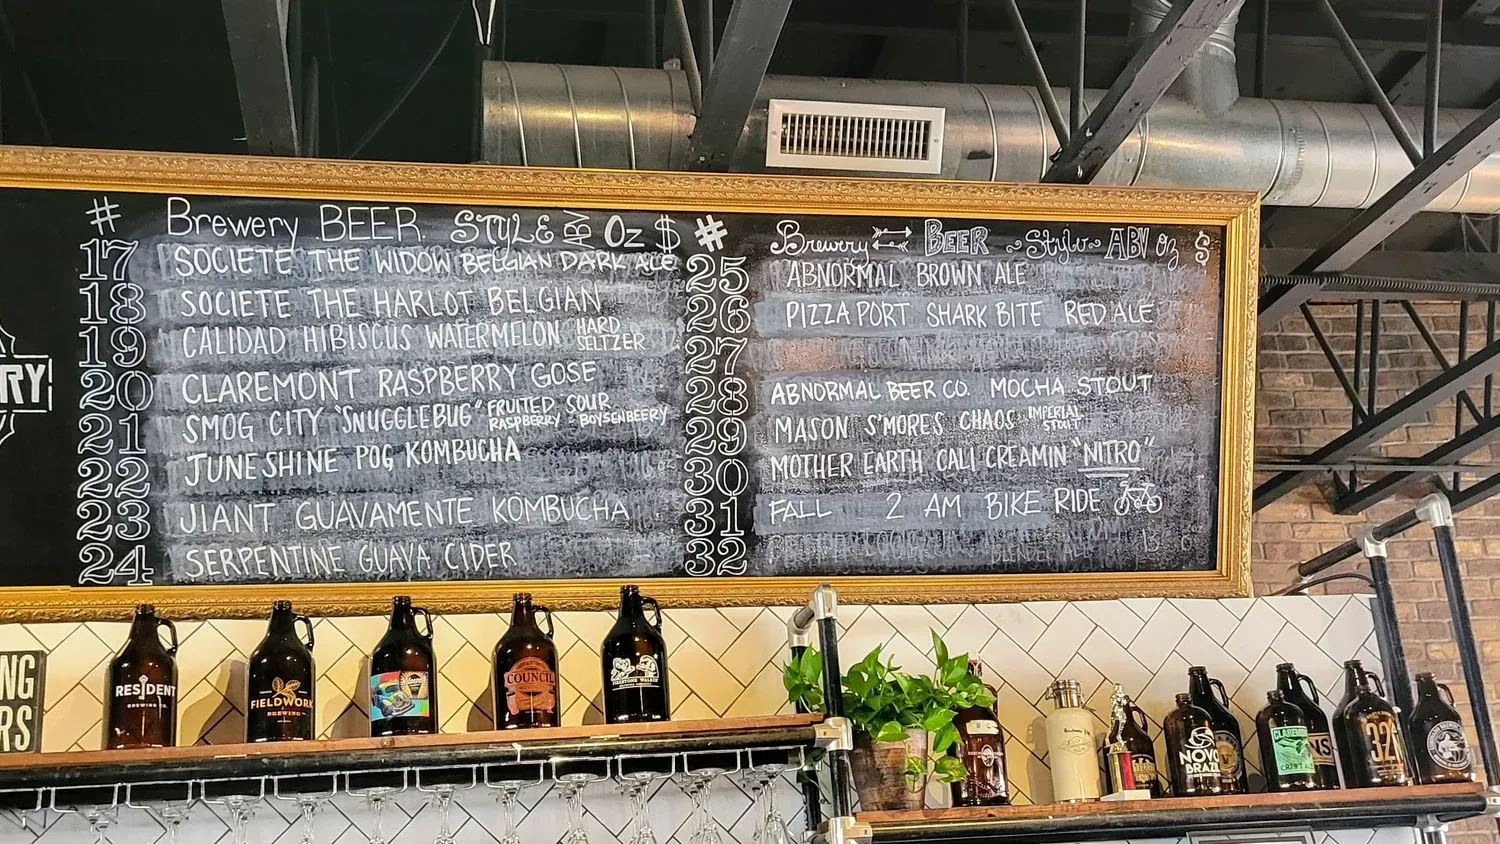 # Brewery BEER STYLE ABV Oz $
17 SOCIETE THE WIDOW BELGIAN DARK ALE
18 SOCIETE THE HARLOT BELGIAN
19 CALIDAD HIBISCUS WATERMELON HARD SELTZER
20 CLAREMONT RASPBERRY GOSE
21 SMOG CITY "SNUGGLEBUG" FRUITED SOUR RASPBERRY - BOYSENBEERY
22 JUNESHINE POG KOMBUCHA
23 JIANT GUAVAMENTE KOMBUCHA
24 SERPENTINE GUAVA CIDER
# Brewery BEER Style ABV oz $
25 ABNORMAL BROWN ALE
26 PIZZA PORT SHARK BITE RED ALE
27
28 ABNORMAL BEER CO. MOCHA STOUT
29 MASON S'MORES CHAOS IMPERIAL STOUT
30 MOTHER EARTH CALI CREAMIN "NITRO"
31 FALL 2 AM BIKE RIDE
32
RY
NG
RS
RESIDENT
BREWING CO.
FIELDWORK
BREWING
COUNCIL
FIRESTONE WALKER
NOVO
BRAZIL
CLAREMONT
CRAFT ALES
NS
32